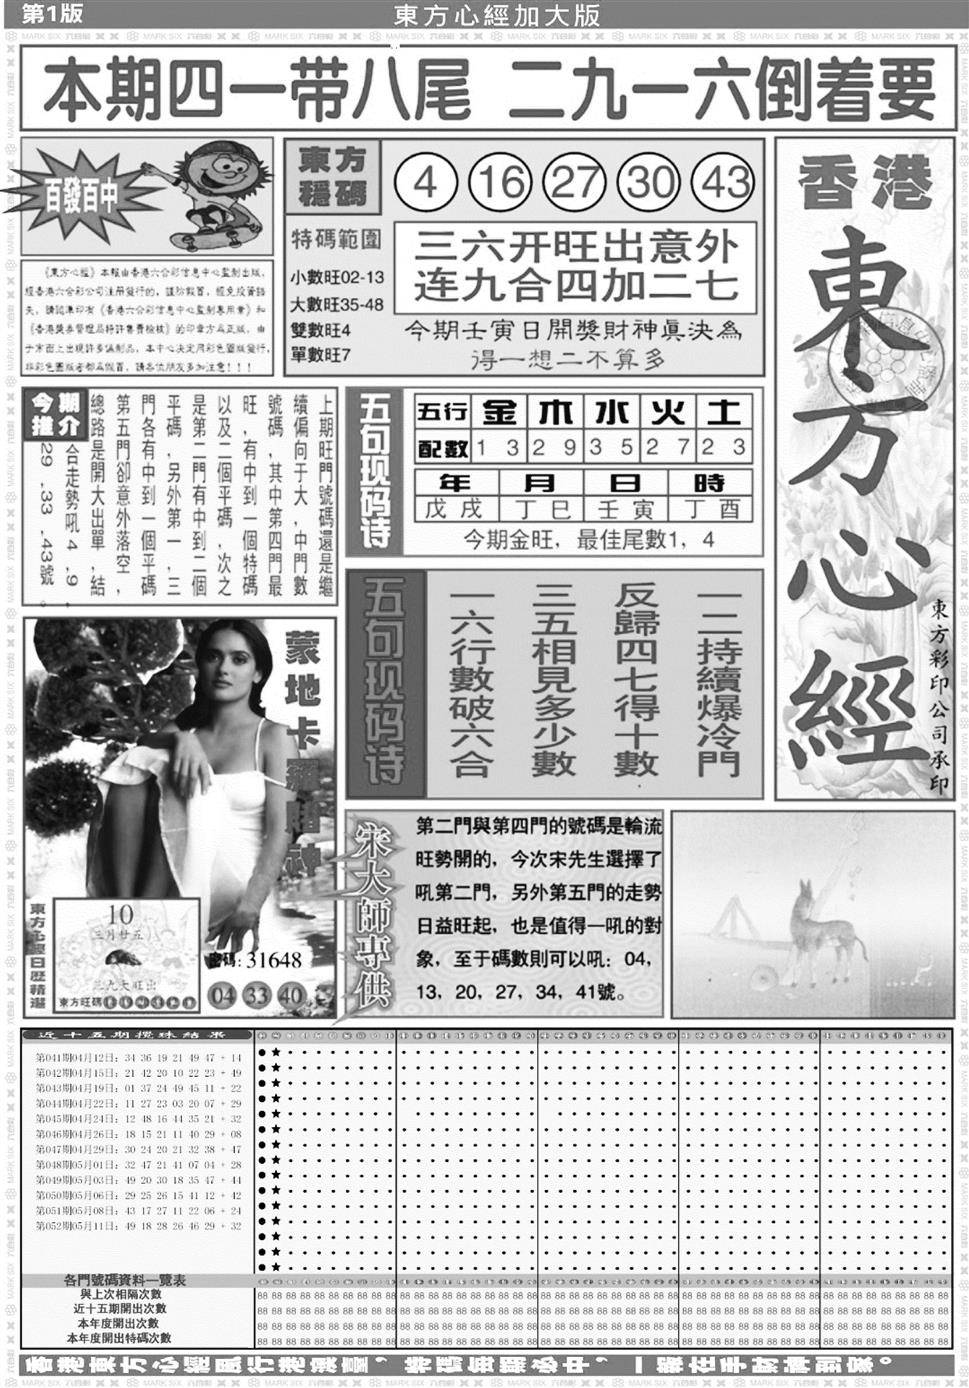 第1版
東方心經加大版
本期四一带八尾 二九一六倒着要
百發百中
《東方心經》本報由香港六合彩信息中心監制出版，
經香港六合彩公司注册發行的，謹防假冒，經免投資錯
失，請認準印有《香港六合彩信息中心監制專用章》和
《香港獎券管理局特許售賣檢核》的印章方爲正版，由
于市面上出現許多僞制品，本中心决定用彩色圖版發行，
非彩色圖版者都爲假冒，請各位朋友多加注意！！！
東方
穩碼
4 16 27 30 43
特碼範圍
小數旺02-13
大數旺35-48
雙數旺4
單數旺7
三六开旺出意外
连九合四加二七
今期壬寅日開獎財神真決為
得一想二不算多
香港
東方心經
東方彩印公司承印
今期
推介
上期旺門號碼還是繼
續偏向于大，中門數
號碼，其中第四門最
旺，有中到一個特碼
以及二個平碼，次之
是第二門有中到二個
平碼，另外第一，三
門各有中到一個平碼
第五門卻意外落空，
總路是開大出單，結
合走勢吼4，9，
29，33，43號。
五句现码诗
五行 金 木 水 火 土
配數 1 3 2 9 3 5 2 7 2 3
年 月 日 時
戊戌 丁巳 壬寅 丁酉
今期金旺，最佳尾數1，4
五句现码诗
一二持續爆冷門
反歸四七得十數
三五相見多少數
一六行數破六合
蒙地卡羅賭神
東方心經日歷精選
10
三月廿五
三九大旺出
東方旺碼
密碼：31648
04 33 40
宋大師專供
第二門與第四門的號碼是輪流
旺勢開的，今次宋先生選擇了
吼第二門，另外第五門的走勢
日益旺起，也是值得一吼的對
象，至于碼數則可以吼：04，
13，20，27，34，41號。
近十五期攪珠結果
第041期04月12日：34 36 19 21 49 47 + 14
第042期04月15日：21 42 20 10 22 23 + 49
第043期04月19日：01 37 24 49 45 11 + 22
第044期04月22日：11 27 23 03 20 07 + 29
第045期04月24日：12 48 16 44 35 21 + 32
第046期04月26日：18 15 21 11 40 29 + 08
第047期04月29日：30 24 20 21 32 38 + 47
第048期05月01日：32 47 21 41 07 04 + 28
第049期05月03日：49 20 30 18 35 47 + 44
第050期05月06日：29 25 26 15 41 12 + 42
第051期05月08日：43 17 27 11 22 06 + 24
第052期05月11日：49 18 28 26 46 29 + 32
各門號碼資料一覽表
與上次相隔次數
近十五期開出次數
本年度開出次數
本年度開出特碼次數
香港東方心經風行港澳臺，特碼每期必中，一版在手財神到家。